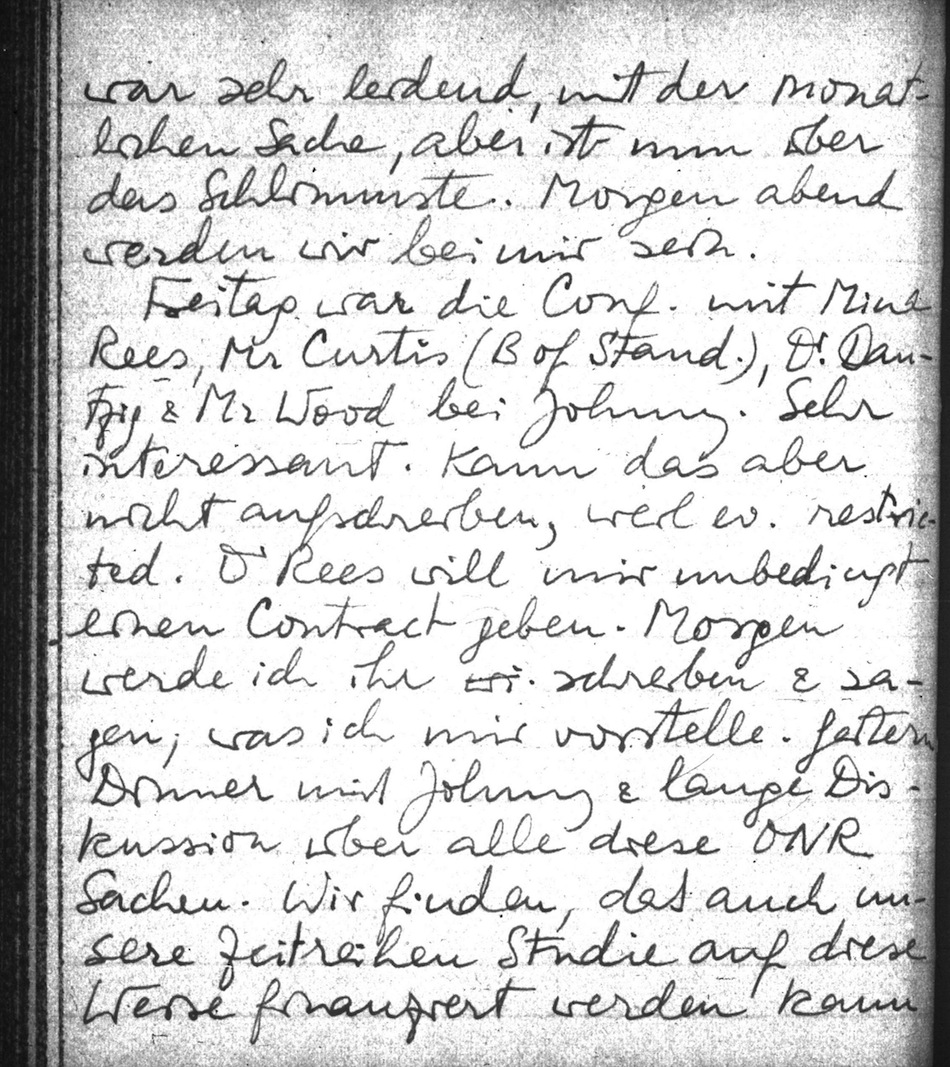 war sehr leidend, mit der monat-
lichen Sache, aber ist nun über
das Schlimmste. Morgen abend
werden wir bei mir sein.
Freitag war die Conf. mit Mina
Rees, Mr Curtis (B of Stand.), Dr. Dan-
tzig & Mr Wood bei Johnny. Sehr
interessant. Kann das aber
nicht aufschreiben, weil ev. restric-
ted. Dr Rees will mir unbedingt
einen Contract geben. Morgen
werde ich ihr schreiben & sa-
gen, was ich mir vorstelle. Gestern
Dinner mit Johnny & lange Dis-
kussion über alle diese ONR
Sachen. Wir finden, daß auch un-
sere Zeitreihen Studie auf diese
Weise finanziert werden kann